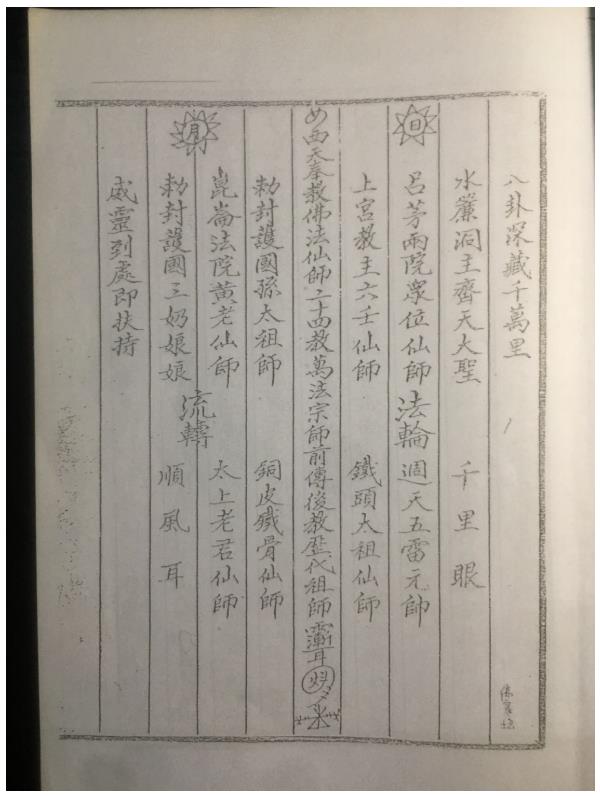 八卦深藏千萬里
水簾洞主齊天大聖 千里眼
日
呂茅兩院眾位仙師 法輪 週天五雷元帥
上宮教主六壬仙師 鐵頭太祖仙師
西天奉教佛法仙師二十四教萬法宗師前傳後教歷代祖師
勅封護國孫太祖師 銅皮鐵骨仙師
月
崑崙法院黃老仙師 流轉 太上老君仙師
勅封護國三奶娘娘 順風耳
威靈到處即扶持